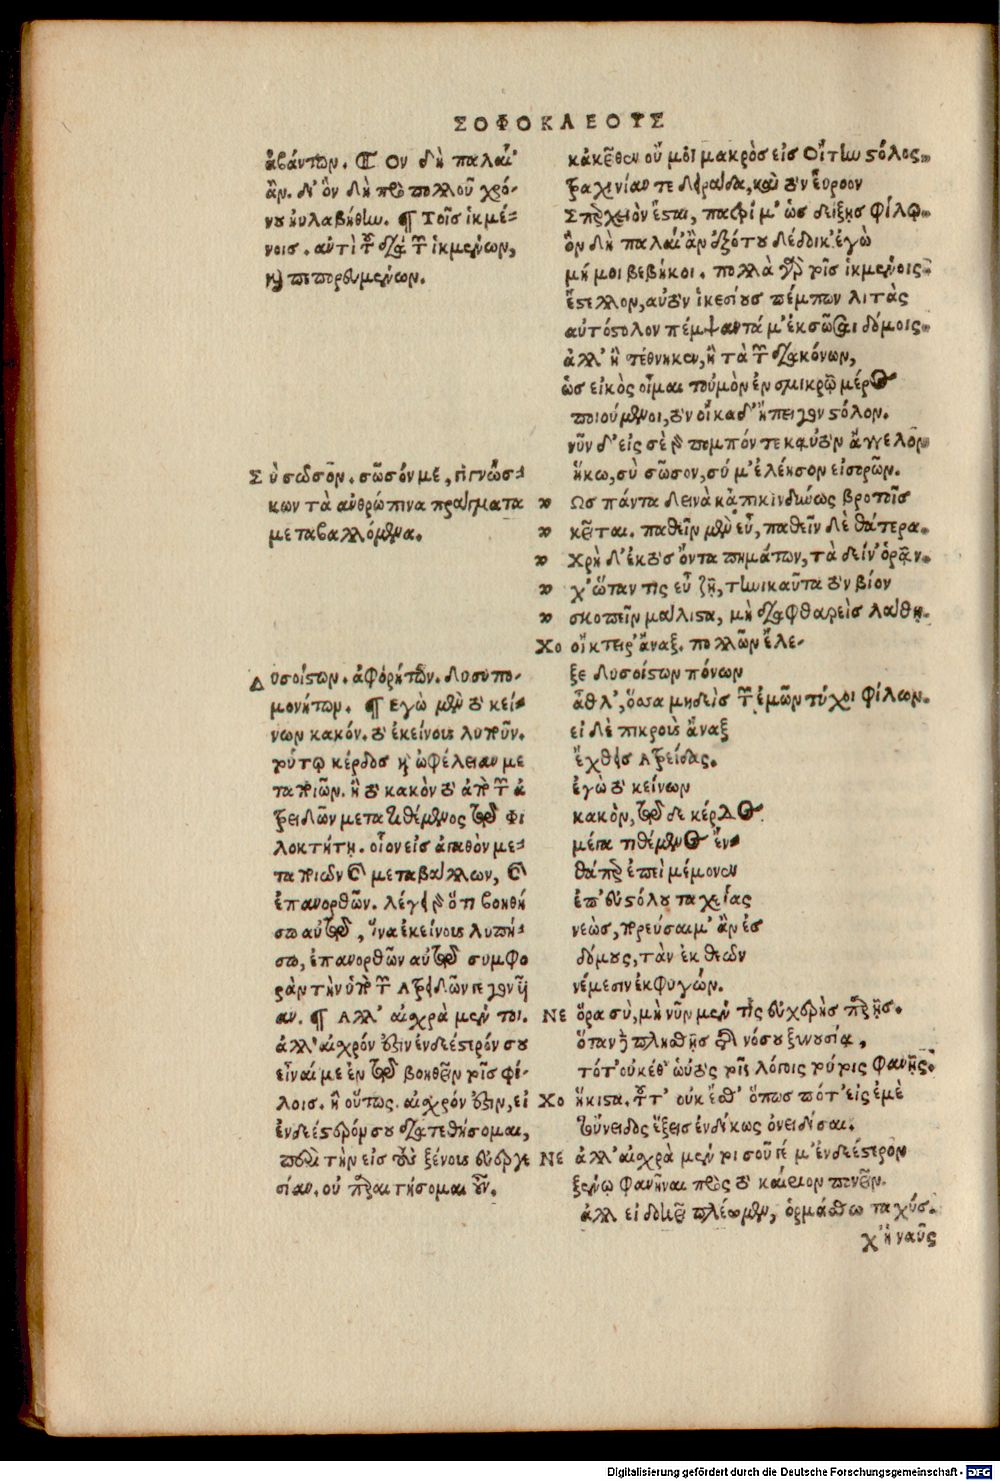 ΣΟΦΟΚΛΕΟΥΣ
ἀβάντων. Ὃν δὴ παλαί'
ἂν. δι' ὃν δὴ πρὸ πολλοῦ χρό-
νου ηὐλαβήθην. ¶ Τοῖς ἱκμέ-
νοις. ἀντὶ τοῦ διὰ τῶν ἱκμένων,
καὶ πεπορευμένων.
Σὺ σῶσον. σῶσόν με, γινώσ-
κων τὰ ἀνθρώπινα πράγματα
μεταβαλλόμενα.
Δυσοίστων. ἀφορήτων. δυσυπο-
μονήτων. ¶ Ἐγὼ μὲν τὸ κεί-
νων κακόν. τὸ ἐκείνους λυποῦν.
τούτῳ κέρδος καὶ ὠφέλειαν με
τατιθῶν. ἢ τὸ κακὸν τὸ ἀπὸ τῶν ἀ
τρειδῶν μετατιθέμενος τῷ Φι
λοκτήτῃ. οἷον εἰς ἀγαθὸν με-
τατιθῶν καὶ μεταβάλλων, καὶ
ἐπανορθῶν. λέγει δὲ ὅτι βοηθή
σω αὐτῷ, ἵνα ἐκείνους λυπή-
σω, ἐπανορθῶν αὐτῷ συμφο
ρὰν τὴν ὑπὸ τῶν Ἀτρειδῶν γεγενημέν
αν. ¶ Ἀλλ' αἰσχρὰ μέν τοι.
ἀλλ' αἰσχρόν ἐστιν ἐνδεέστερόν σου
εἶναί με ἐν τῷ βοηθεῖν τοῖς φί-
λοις. ἢ οὕτως. αἰσχρόν ἐστιν, εἰ
ἐνδεέστερόν σου διατεθήσομαι,
πρὸς τὴν εἰς τοὺς ξένους εὐεργε
σίαν. οὐ παραιτήσομαι οὖν.
κἀκεῖθεν οὔ μοι μακρὸς εἰς Οἴτην στόλος.
Τραχινίαν τε δειράδα, καὶ τὸν εὔροον
Σπερχειὸν ἔσται, πατρί μ' ὡς δείξῃς φίλῳ.
ὃν δὴ παλαί' ἂν ἐξότου δέδοικ' ἐγὼ
μή μοι βεβήκοι. πολλὰ γὰρ τοῖς ἱκμένοις
ἔστελλον, αὐτὸν ἱκεσίους πέμπων λιτὰς
αὐτόστολον πέμψαντά μ' ἐκσῶσαι δόμοις.
ἀλλ' ἢ τέθνηκεν, ἢ τὰ τῶν διακόνων,
ὡς εἰκὸς οἶμαι τοὐμὸν ἐν σμικρῷ μέρος
ποιούμενοι, τὸν οἴκαδ' ἤπειγον στόλον.
νῦν δ' εἰς σὲ γὰρ πομπόν τε καὐτὸν ἄγγελον
ἥκω, σὺ σῶσον, σύ μ' ἐλέησον εἰσορῶν.
Ὡς πάντα δεινὰ κἀπικινδύνως βροτοῖς
κεῖται. παθεῖν μὲν εὖ, παθεῖν δὲ θάτερα.
Χρὴ δ' ἐκτὸς ὄντα πημάτων, τὰ δείν' ὁρᾶν.
χ' ὥταν τις εὖ ζῇ, τηνικαῦτα τὸν βίον
σκοπεῖν μάλιστα, μὴ διαφθαρεὶς λάθῃ.
Χο οἴκτειρ' ἄναξ. πολλῶν ἔλε-
ξε δυσοίστων πόνων
ἆθλ', ὅσσα μηδεὶς τῶν ἐμῶν τύχοι φίλων.
εἰ δὲ πικροὺς ἄναξ
ἔχθεις Ἀτρείδας.
ἐγὼ τὸ κείνων
κακὸν, τῷ δε κέρδος
μέγα τιθέμενος ἔν-
θάπερ ἐπεὶ μέμονεν
ἐπ' εὐστόλου ταχείας
νεὼς, πορεύσαιμ' ἂν ἐς
δόμους, τὰν ἐκ θεῶν
νέμεσιν ἐκφυγών.
ΝΕ ὅρα σὺ, μὴ νῦν μέν τις εὐχερὴς παρῇς.
ὅταν δὲ πλησθῇς τῆς νόσου ξυνουσίᾳ,
τότ' οὐκέθ' ωὑτὸς τοῖς λόγοις τούτοις φανῇς.
Χο ἥκιστα. τοῦτ' οὐκ ἔσθ' ὅπως πότ' εἰς ἐμὲ
τοὔνειδος ἕξεις ἐνδίκως ὀνειδίσαι.
ΝΕ ἀλλ' αἰσχρὰ μέν τοι σοῦ γέ μ' ἐνδεέστερον
ξένῳ φανῆναι πρὸς τὸ καίριον πονεῖν.
ἀλλ' εἰ δοκεῖ πλέωμεν, ὁρμάσθω ταχύς.
χ' ἡ ναῦς
Digitalisierung gefördert durch die Deutsche Forschungsgemeinschaft - DFG